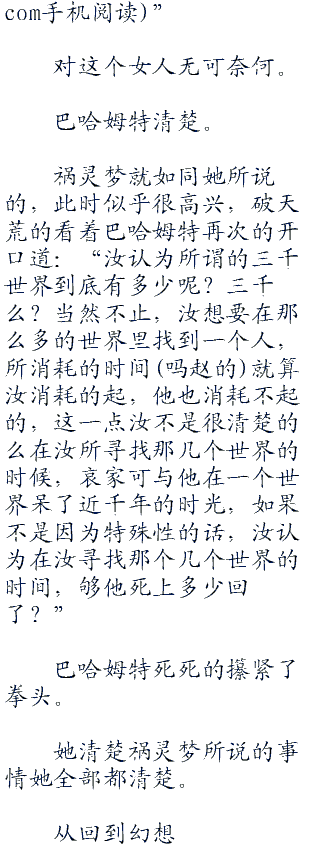 com手机阅读)”
对这个女人无可奈何。
巴哈姆特清楚。
祸灵梦就如同她所说
的，此时似乎很高兴，破天
荒的看着巴哈姆特再次的开
口道：“汝认为所谓的三千
世界到底有多少呢？三千
么？当然不止，汝想要在那
么多的世界里找到一个人，
所消耗的时间(吗赵的)就算
汝消耗的起，他也消耗不起
的，这一点汝不是很清楚的
么在汝所寻找那几个世界的
时候，哀家可与他在一个世
界呆了近千年的时光，如果
不是因为特殊性的话，汝认
为在汝寻找那个几个世界的
时间，够他死上多少回
了？”
巴哈姆特死死的攥紧了
拳头。
她清楚祸灵梦所说的事
情她全部都清楚。
从回到幻想